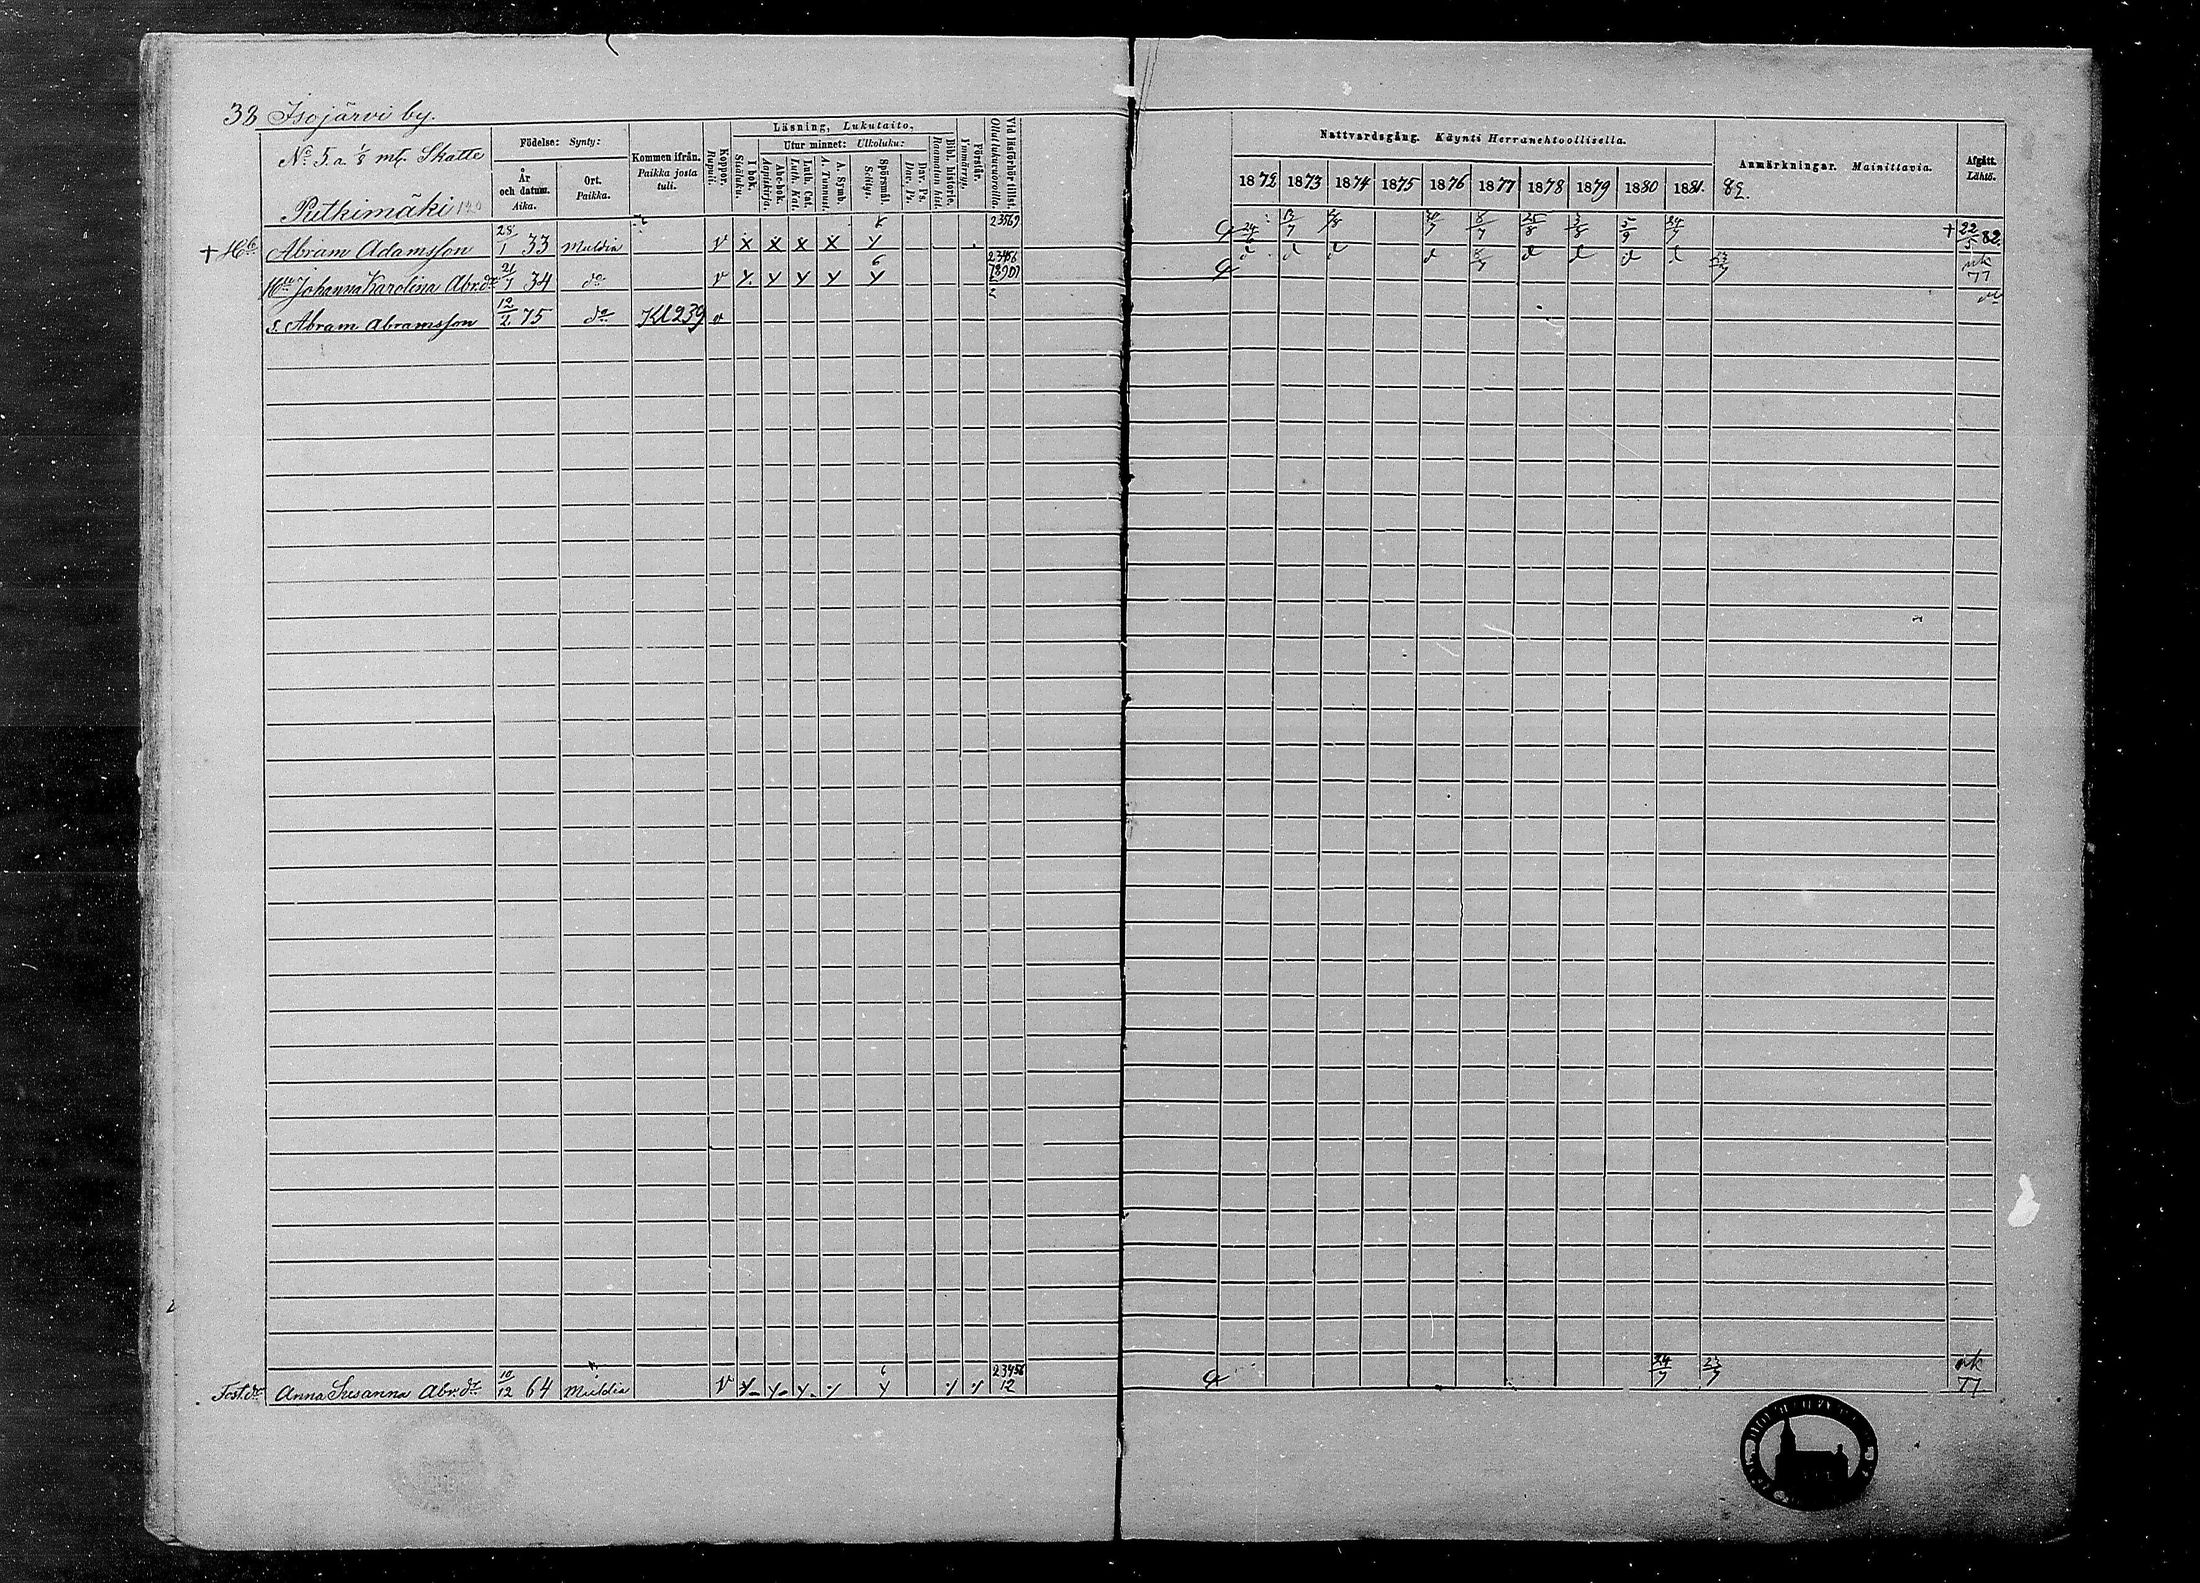 33 Isojärvi by.
No 5. a. 1/8 mt. Skatte
Putkimäki
Födelse: Synty:
År och datum. Aika.
Ort. Paikka.
Kommen ifrån. Paikka josta tuli.
Koppor. Rupuli.
Läsning, Lukutaito.
I bok. Sisäluku.
Utur minnet: Ulkoluku:
Abc-bok. Aapiskirja.
Luth. Cat. Luth. Kat.
A. Symb. A. Tunnust.
Spörsmål. Selitys.
Dav. Ps. Dav. Ps.
Bibl. historie. Raamatun hist.
Förstår. Ymmärrys.
Vid läsförhör tillst. Ollut lukuvuoroilla.
Nattvardsgång. Käynti Herranehtoollisella.
1872 1873 1874 1875 1876 1877 1878 1879 1880 1881. 82.
Anmärkningar. Mainittavia.
Afgått. Lähtö.
† Abram Adamsson 28/1 33 Muldia v x x x x y 6 23569 24/6 13/7 30/7 8/7 25/8 3/8 5/9 24/7 † 22/5 82.
Hu Johanna Karolina Abr.dr 21/1 34 do v y. y y y y 6 23456 d d d d d d d d 23/7 uk 77
s. Abram Abramsson 12/2 75 do Kl 239 v 2
Anna Susanna Abr.dr 10/12 64 Muldia v y y y y 6 23456 12 24/7 23/7 uk 77